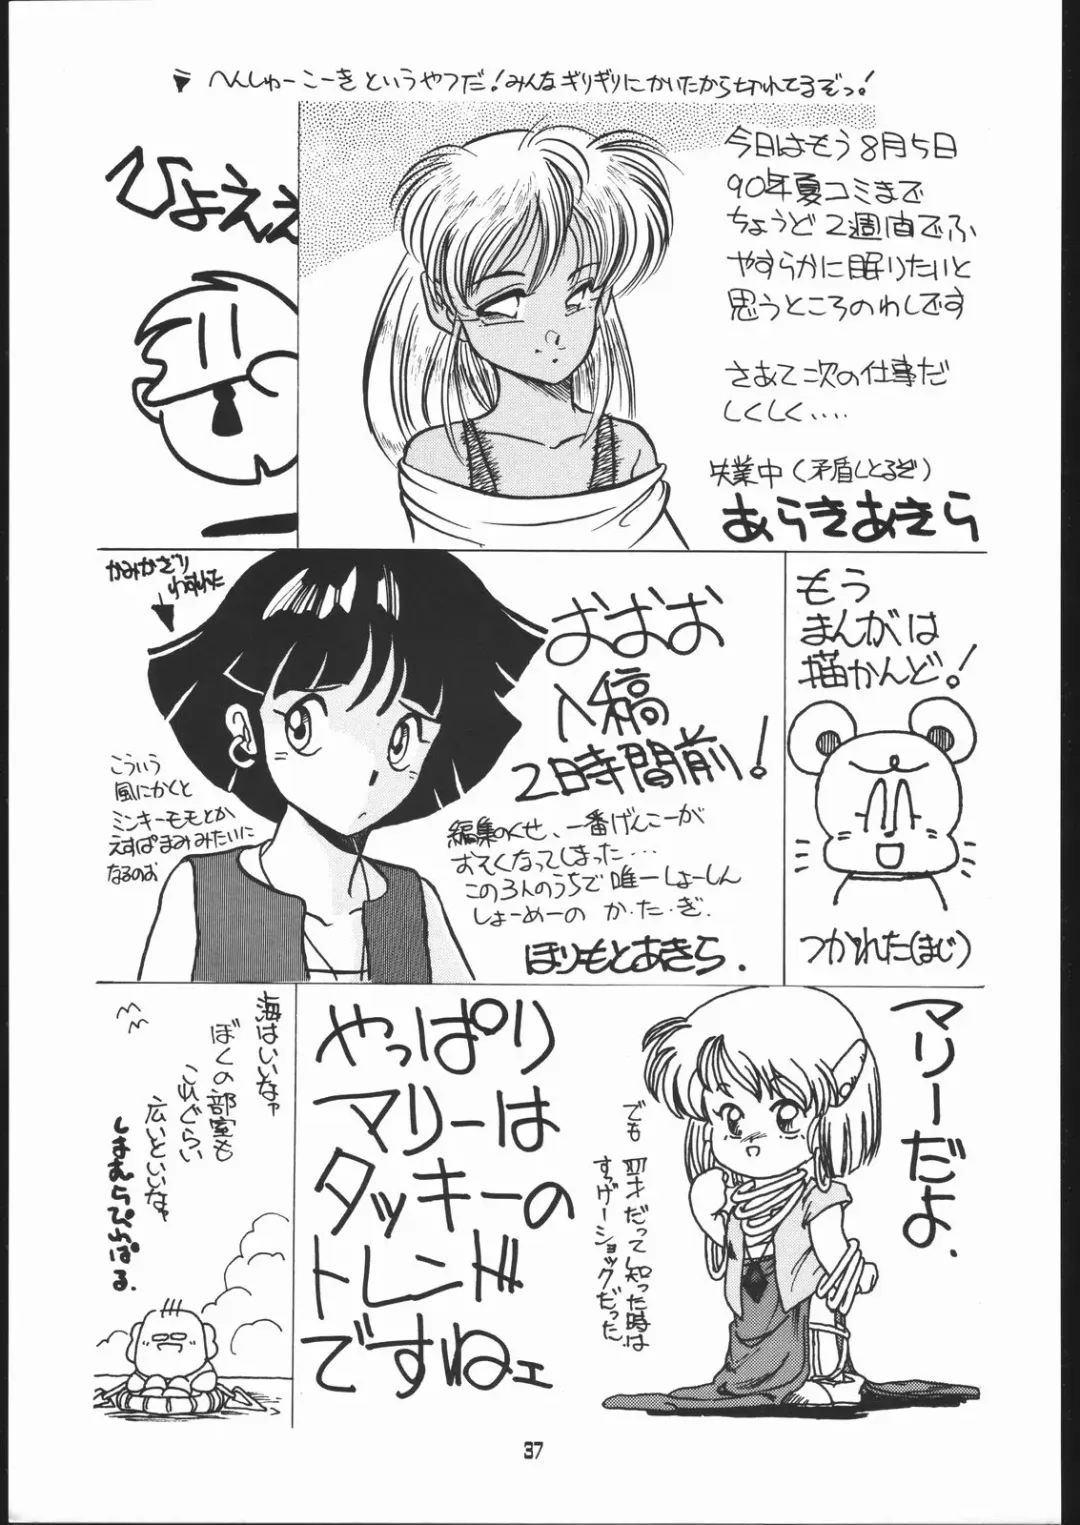 ▼へんしゅーこーきというやつだ!みんなギリギリにかいたから切れてるぞっ!
ひょええ
今日はもう8月5日
90年夏コミまで
ちょうど2週間でふ
やすらかに眠りたいと
思うところのわしです
さあて次の仕事だ
しくしく....
失業中(矛盾しとるぞ)
あらきあきら
かみかざり
わすれた
おおお
入稿
2日時間前!
こういう
風にかくと
ミンキーモモとか
えすぱあまみみたいに
なるのお
編集のくせ、一番げんこーが
おそくなってしまった...
この3人のうちで唯一しょーしん
しょーめーの か・た・ぎ.
ほりもとあきら.
もう
まんがは
描かんど!
つかれた(まじ)
海はいいなァ
ぼくの部室も
これぐらい
広いといいなァ
しまむらぴれぱる.
やっぱり
マリーは
タッキーの
トレンド
ですねェ
マリーだよ.
でも 四才だって知った時は
すっげーショックだった
37